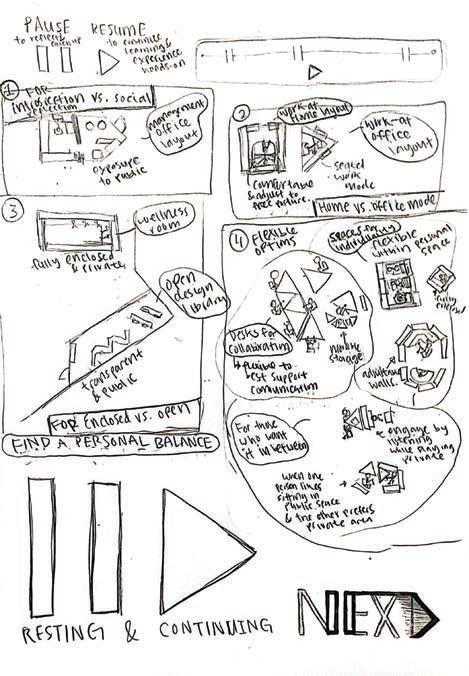 PAUSE
to reflect &
RESUME
to continue
learning &
experience
hands-on
1
FOR
introspection vs. social
management
office
layout
exposure
to public
2
work-at
home layout
work-at
office
layout
comfortable
& adjust to
seated
work
mode
Home vs. office mode
3
wellness
room
fully enclosed
& private
open
design
library
transparent
& public
FOR Enclosed vs. open
4 FLEXIBLE
OPTIONS
spaces for
individuality
flexible
within personal
space
fully
enclosed
DESKS FOR
collaboration
best support
communication
storage
walls
For those
who want
it in between
engage by
listening
while staying
private
when one
person likes
sitting in
public space
& the other prefers
private area
FIND A PERSONAL BALANCE
RESTING & CONTINUING
NEX